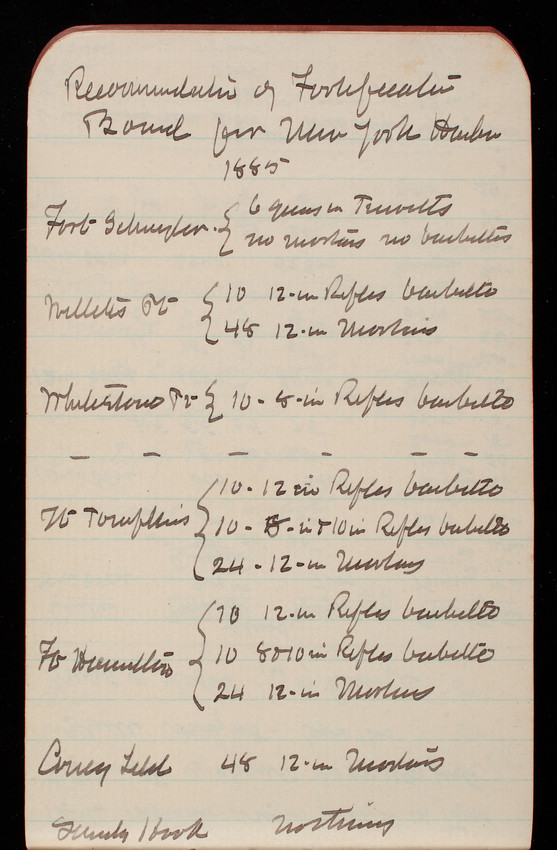 Recommendation of Fortification
Board for New York Harbor
1885
Fort Schuyler. { 6 guns in Turretts
no mortars no barbettes
Willets Pt { 10 12-in Rifles barbette
48 12-in Mortars
Whitestone Pt { 10 - 8-in Rifles barbette
Ft Tompkins { 10 - 12 in Rifles barbette
10 - 8-in & 10 in Rifles barbette
24 - 12-in Mortars
Ft Hamilton { 10 12-in Rifles barbette
10 8 & 10 in Rifles barbette
24 12-in Mortars
Coney Isld 48 12-in Mortars
Sandy Hook nothing